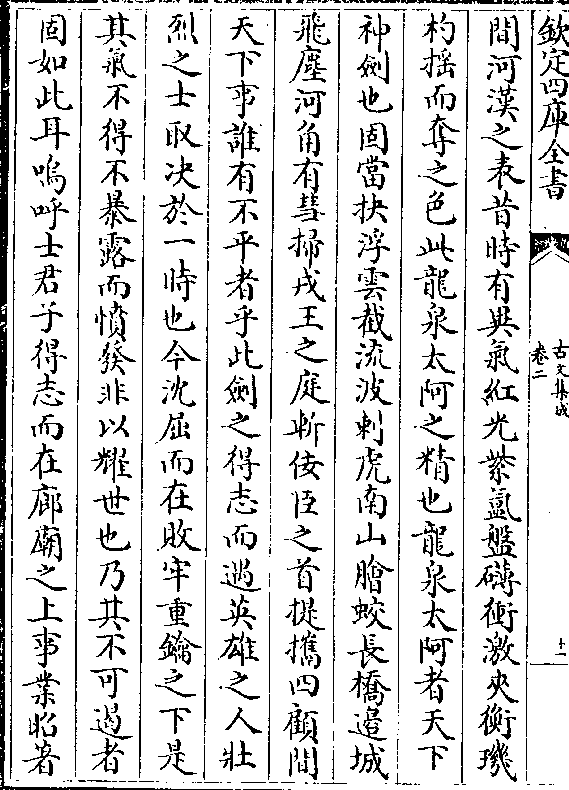 欽定四庫全書
古文集成
卷二
十二
間河漢之表昔時有異氣紅光紫氲盤礴衝激夾衡璣
杓揺而奪之色此龍泉太阿之精也龍泉太阿者天下
神劍也固當抉浮雲截流波刺虎南山膾蛟長橋邉城
飛塵河角有彗掃戎王之庭斬佞臣之首提攜四顧間
天下事誰有不平者乎此劍之得志而遇英雄之人壯
烈之士取决於一時也今沈屈而在敗牢重鑰之下是
其氣不得不暴露而憤發非以耀世也乃其不可遏者
固如此耳嗚呼士君子得志而在廊廟之上事業昭著